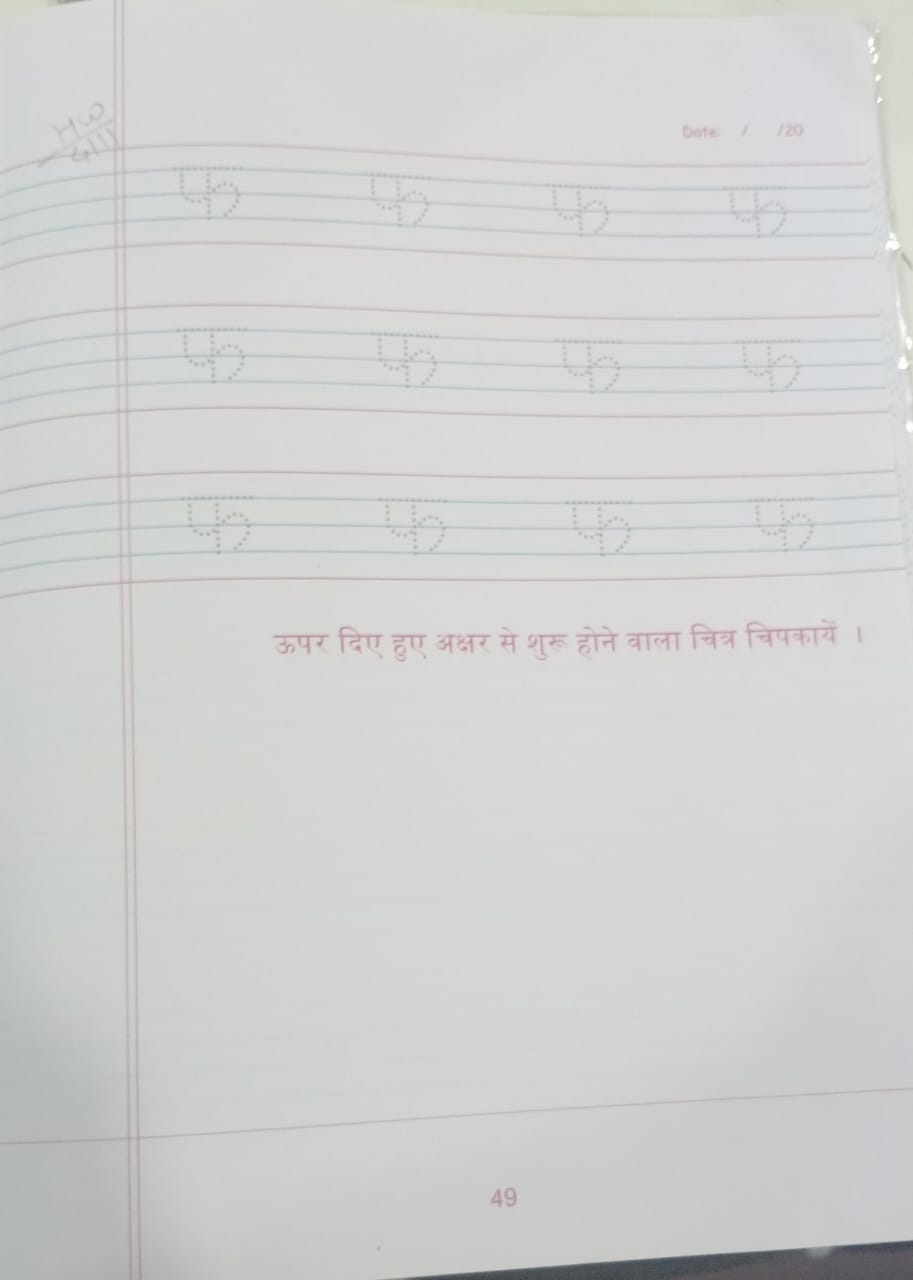 HW
4/11
Date: / /20
फ फ फ फ
फ फ फ फ
फ फ फ फ
ऊपर दिए हुए अक्षर से शुरू होने वाला चित्र चिपकायें ।
49